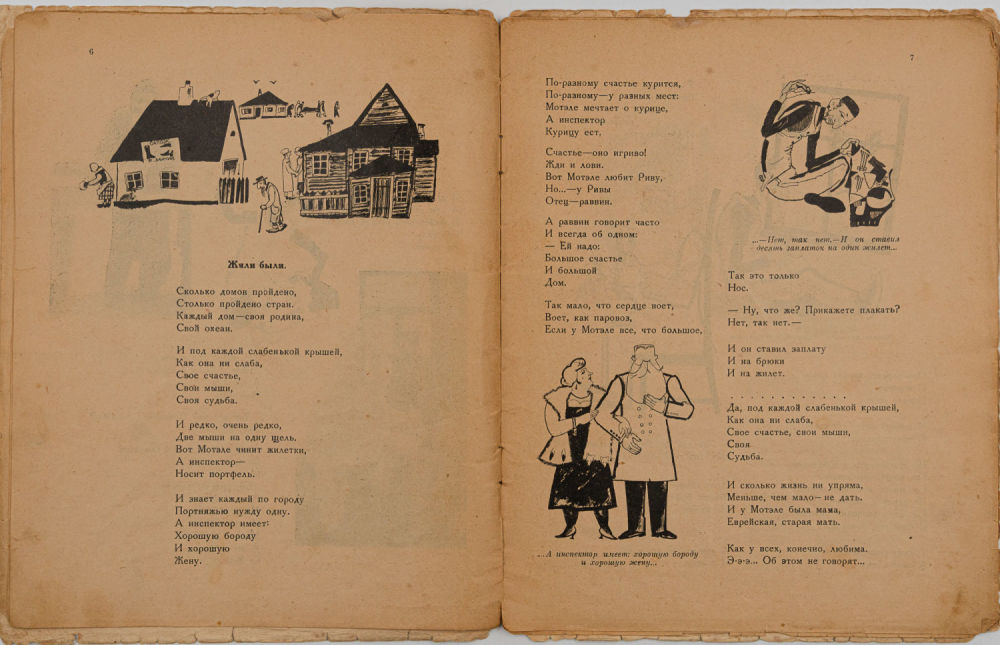 6
Жили были.
Сколько домов пройдено,
Столько пройдено стран.
Каждый дом—своя родина,
Свой океан.
И под каждой слабенькой крышей,
Как она ни слаба,
Свое счастье,
Свои мыши,
Своя судьба.
И редко, очень редко,
Две мыши на одну щель.
Вот Мотэле чинит жилетки,
А инспектор—
Носит портфель.
И знает каждый по городу
Портняжью нужду одну.
А инспектор имеет:
Хорошую бороду
И хорошую
Жену.
7
По-разному счастье курится,
По-разному—у разных мест:
Мотэле мечтает о курице,
А инспектор
Курицу ест.
Счастье—оно игриво!
Жди и лови.
Вот Мотэле любит Риву,
Но...—у Ривы
Отец—раввин.
А раввин говорит часто
И всегда об одном:
— Ей надо:
Большое счастье
И большой
Дом.
Так мало, что сердце воет,
Воет, как паровоз,
Если у Мотэле все, что большое,
...А инспектор имеет: хорошую бороду
и хорошую жену...
...—Нет, так нет.—И он ставил
десять заплаток на один жилет...
Так это только
Нос.
— Ну, что же? Прикажете плакать?
Нет, так нет.—
И он ставил заплату
И на брюки
И на жилет.
. . . . . . . . . . . . .
Да, под каждой слабенькой крышей,
Как она ни слаба,
Свое счастье, свои мыши,
Своя
Судьба.
И сколько жизнь ни упряма,
Меньше, чем мало—не дать.
И у Мотэле была мама,
Еврейская, старая мать.
Как у всех, конечно, любима.
Э-э-э... Об этом не говорят...